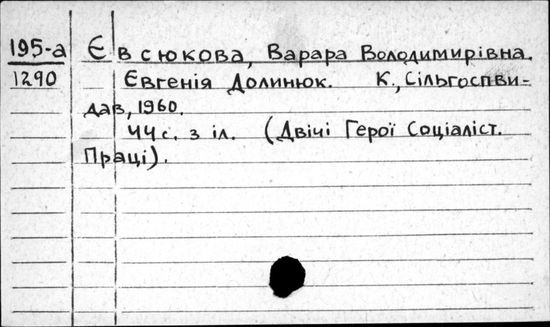 195-а Євсюкова, Варара Володимирівна.
1290 Євгенія Долинюк. К., Сільгоспви-
дав, 1960.
44с. з іл. (Двічі Герої Соціаліст.
Праці).